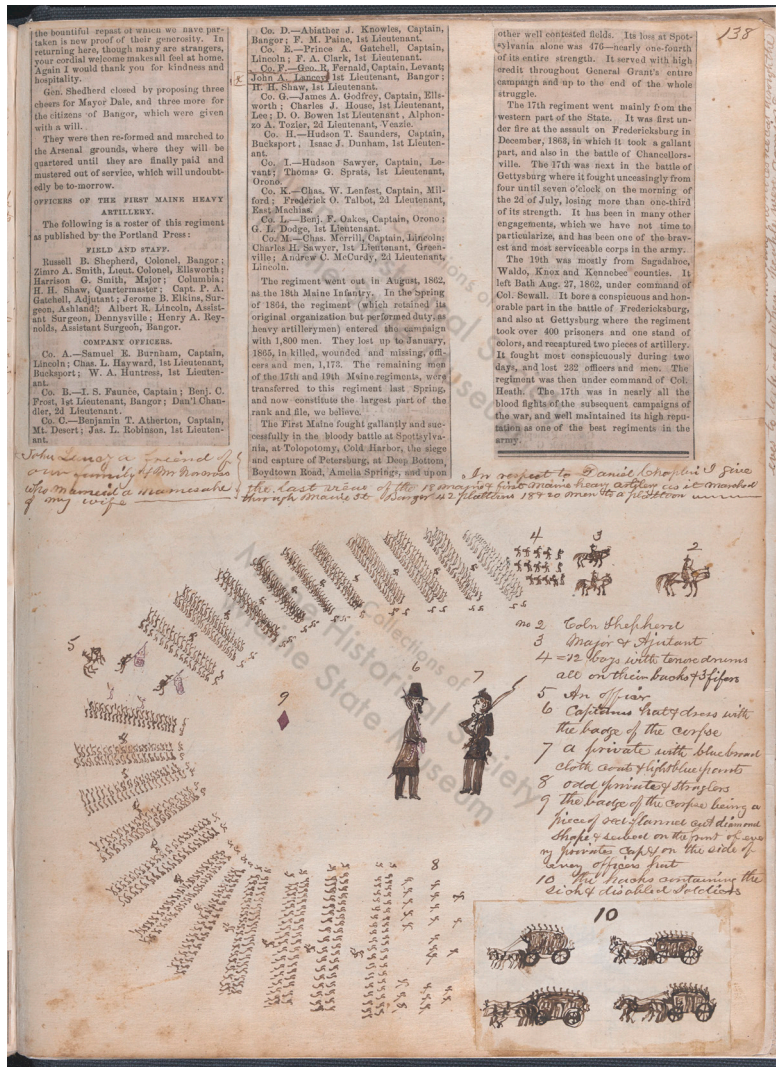 138
the bountiful repast of which we have par-
taken is new proof of their generosity. In
returning here, though many are strangers,
your cordial welcome makes all feel at home.
Again I would thank you for kindness and
hospitality.
Gen. Shedherd closed by proposing three
cheers for Mayor Dale, and three more for
the citizens of Bangor, which were given
with a will.
They were then re-formed and marched to
the Arsenal grounds, where they will be
quartered until they are finally paid and
mustered out of service, which will undoubt-
edly be to-morrow.
OFFICERS OF THE FIRST MAINE HEAVY
ARTILLERY.
The following is a roster of this regiment
as published by the Portland Press:
FIELD AND STAFF.
Russell B. Shepherd, Colonel, Bangor;
Zimro A. Smith, Lieut. Colonel, Ellsworth;
Harrison G. Smith, Major; Columbia;
H. H. Shaw, Quartermaster; Capt. P. A.
Gatchell, Adjutant; Jerome B. Elkins, Sur-
geon, Ashland; Albert R. Lincoln, Assist-
ant Surgeon, Dennysville; Henry A. Rey-
nolds, Assistant Surgeon, Bangor.
COMPANY OFFICERS.
Co. A.—Samuel E. Burnham, Captain,
Lincoln; Chas. L. Hayward, 1st Lieutenant,
Bucksport; W. A. Huntress, 1st Lieuten-
ant.
Co. B.—I. S. Faunce, Captain; Benj. C.
Frost, 1st Lieutenant, Bangor; Dan'l Chan-
dler, 2d Lieutenant.
Co. C.—Benjamin T. Atherton, Captain,
Mt. Desert; Jas. L. Robinson, 1st Lieuten-
ant.
Co. D.—Abiather J. Knowles, Captain,
Bangor; F. M. Paine, 1st Lieutenant.
Co. E.—Prince A. Gatchell, Captain,
Lincoln; F. A. Clark, 1st Lieutenant.
Co. F.—Geo. R. Fernald, Captain, Levant;
John A. Lancey, 1st Lieutenant, Bangor;
H. H. Shaw, 1st Lieutenant.
Co. G.—James A. Godfrey, Captain, Ells-
worth; Charles J. House, 1st Lieutenant,
Lee; D. O. Bowen 1st Lieutenant, Alphon-
zo A. Tozier, 2d Lieutenant, Veazie.
Co. H.—Hudson T. Saunders, Captain,
Bucksport. Isaac J. Dunham, 1st Lieuten-
ant.
Co. I.—Hudson Sawyer, Captain, Le-
vant; Thomas G. Sprats, 1st Lieutenant,
Orono.
Co. K.—Chas. W. Lenfest, Captain, Mil-
ford; Frederick O. Talbot, 2d Lieutenant,
East Machias.
Co. L.—Benj. F. Oakes, Captain, Orono;
G. L. Dodge, 1st Lieutenant.
Co. M.—Chas. Merrill, Captain, Lincoln;
Charles H. Sawyer, 1st Lieutenant, Green-
ville; Andrew C. McCurdy, 2d Lieutenant,
Lincoln.
The regiment went out in August, 1862,
as the 18th Maine Infantry. In the Spring
of 1864, the regiment (which retained its
original organization but performed duty as
heavy artillerymen) entered the campaign
with 1,800 men. They lost up to January,
1865, in killed, wounded and missing, offi-
cers and men, 1,173. The remaining men
of the 17th and 19th Maine regiments, were
transferred to this regiment last Spring,
and now constitute the largest part of the
rank and file, we believe.
The First Maine fought gallantly and suc-
cessfully in the bloody battle at Spottsylva-
nia, at Tolopotomy, Cold Harbor, the siege
and capture of Petersburg, at Deep Bottom,
Boydtown Road, Amelia Springs, and upon
other well contested fields. Its loss at Spot-
sylvania alone was 476—nearly one-fourth
of its entire strength. It served with high
credit throughout General Grant's entire
campaign and up to the end of the whole
struggle.
The 17th regiment went mainly from the
western part of the State. It was first un-
der fire at the assault on Fredericksburg in
December, 1863, in which it took a gallant
part, and also in the battle of Chancellors-
ville. The 17th was next in the battle of
Gettysburg where it fought unceasingly from
four until seven o'clock on the morning of
the 2d of July, losing more than one-third
of its strength. It has been in many other
engagements, which we have not time to
particularize, and has been one of the brav-
est and most serviceable corps in the army.
The 19th was mostly from Sagadahoc,
Waldo, Knox and Kennebec counties. It
left Bath Aug. 27, 1862, under command of
Col. Sewall. It bore a conspicuous and hon-
orable part in the battle of Fredericksburg,
and also at Gettysburg where the regiment
took over 400 prisoners and one stand of
colors, and recaptured two pieces of artillery.
It fought most conspicuously during two
days, and lost 232 officers and men. The
regiment was then under command of Col.
Heath. The 17th was in nearly all the
blood fights of the subsequent campaigns of
the war, and well maintained its high repu-
tation as one of the best regiments in the
army.
John Lancy a friend of
our family & Mr Norris
who married a namesake
of my wife
In respect to Daniel Choplin I give
the last view of the 18 maine & first maine heavy artilery as it marched
through Maine St Bangor 42 plattuns 18 & 20 men to a plattoon
4
3
2
no 2 Coln Shepherd
3 Major & Ajutant
4 = 12 boys with tenor drums
all on their backs & 3 fifers
5 An officer
6 Capitains hat & dress with
the badge of the corpse
7 a private with blue broad
cloth coat & light blue pants
8 odd private & straglers
9 the badge of the corpse being a
piece of red flannel cut diamond
shape & seibed on the frunt of eve
ry privates cap & on the side of
every officers hat
10 the hacks containing the
sick & disabled Soldiers
5
6
7
9
8
10
Collections of
Maine Historical Society
Maine State Museum